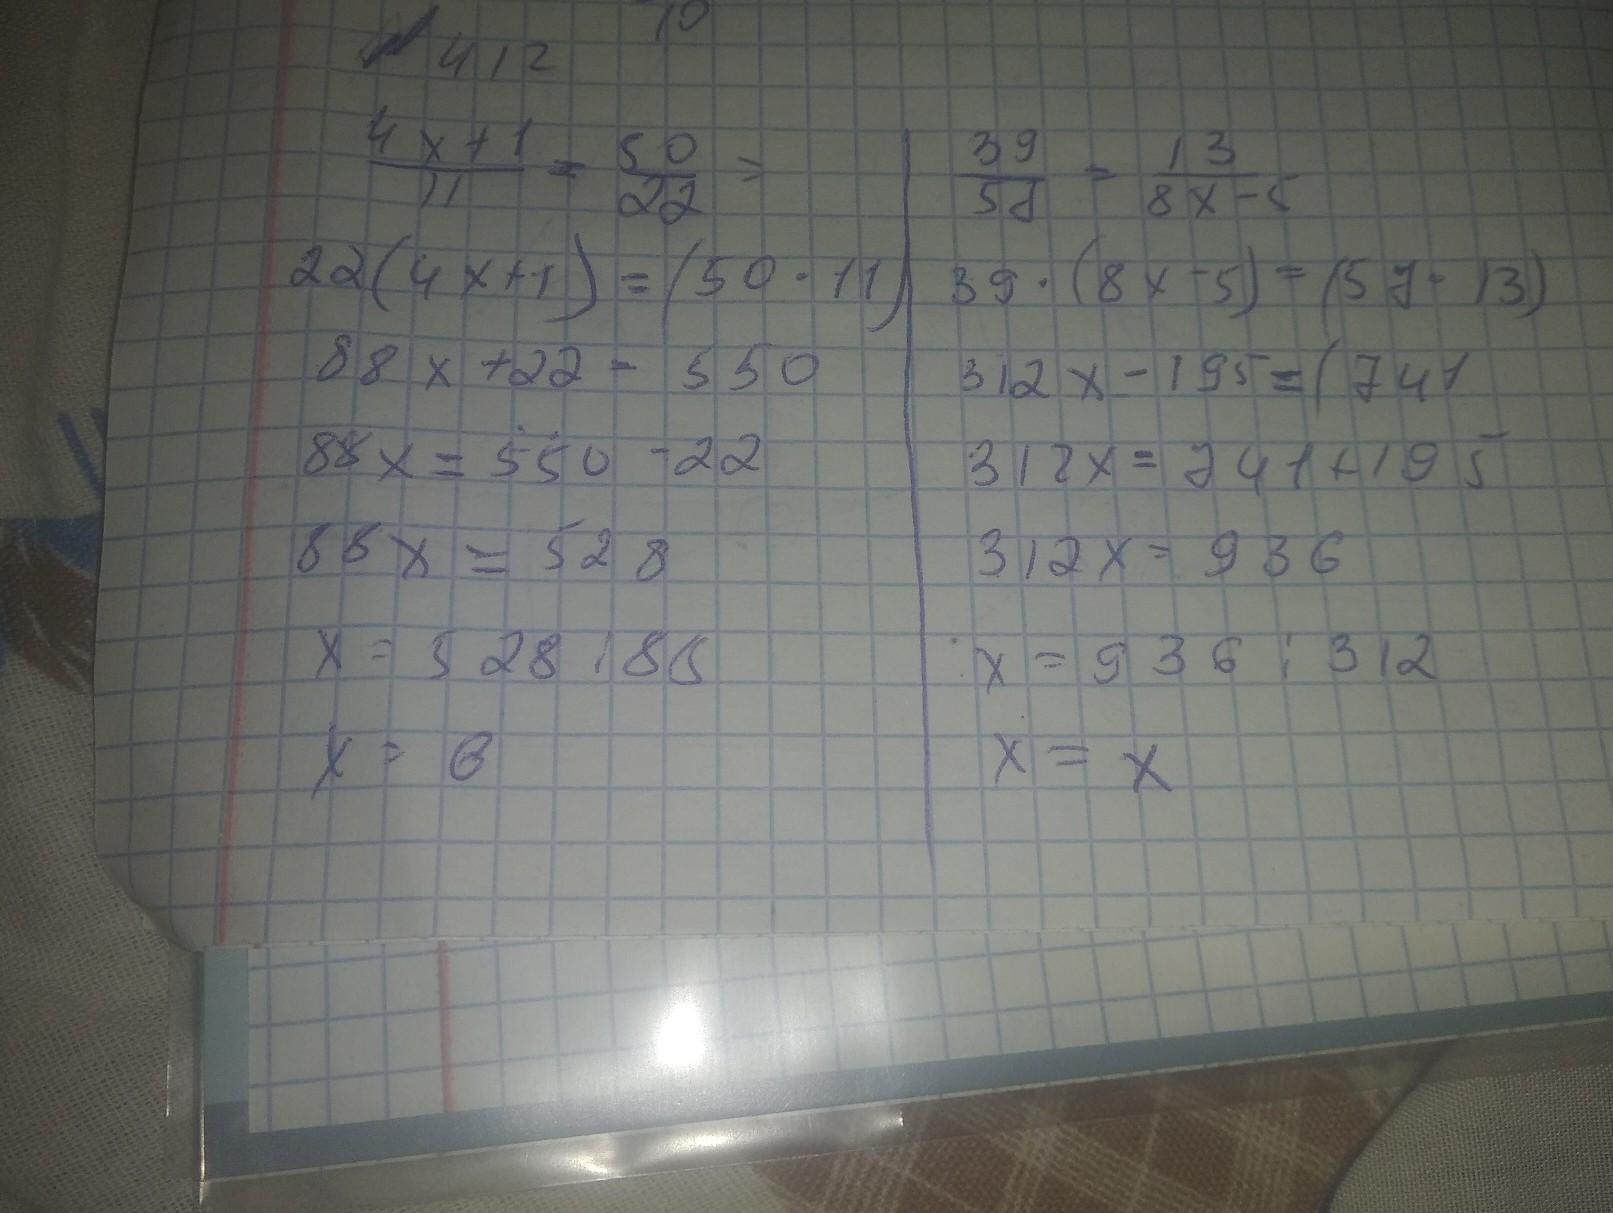 10
№ 412
4x+1/11 = 50/22 =
22(4x+1) = (50·11)
88x+22 = 550
88x = 550-22
88x = 528
x = 528:88
x = 6
39/57 = 13/8x-5
39·(8x-5) = (57·13)
312x-195=(741
312x = 741+195
312x = 936
x = 936:312
x = x